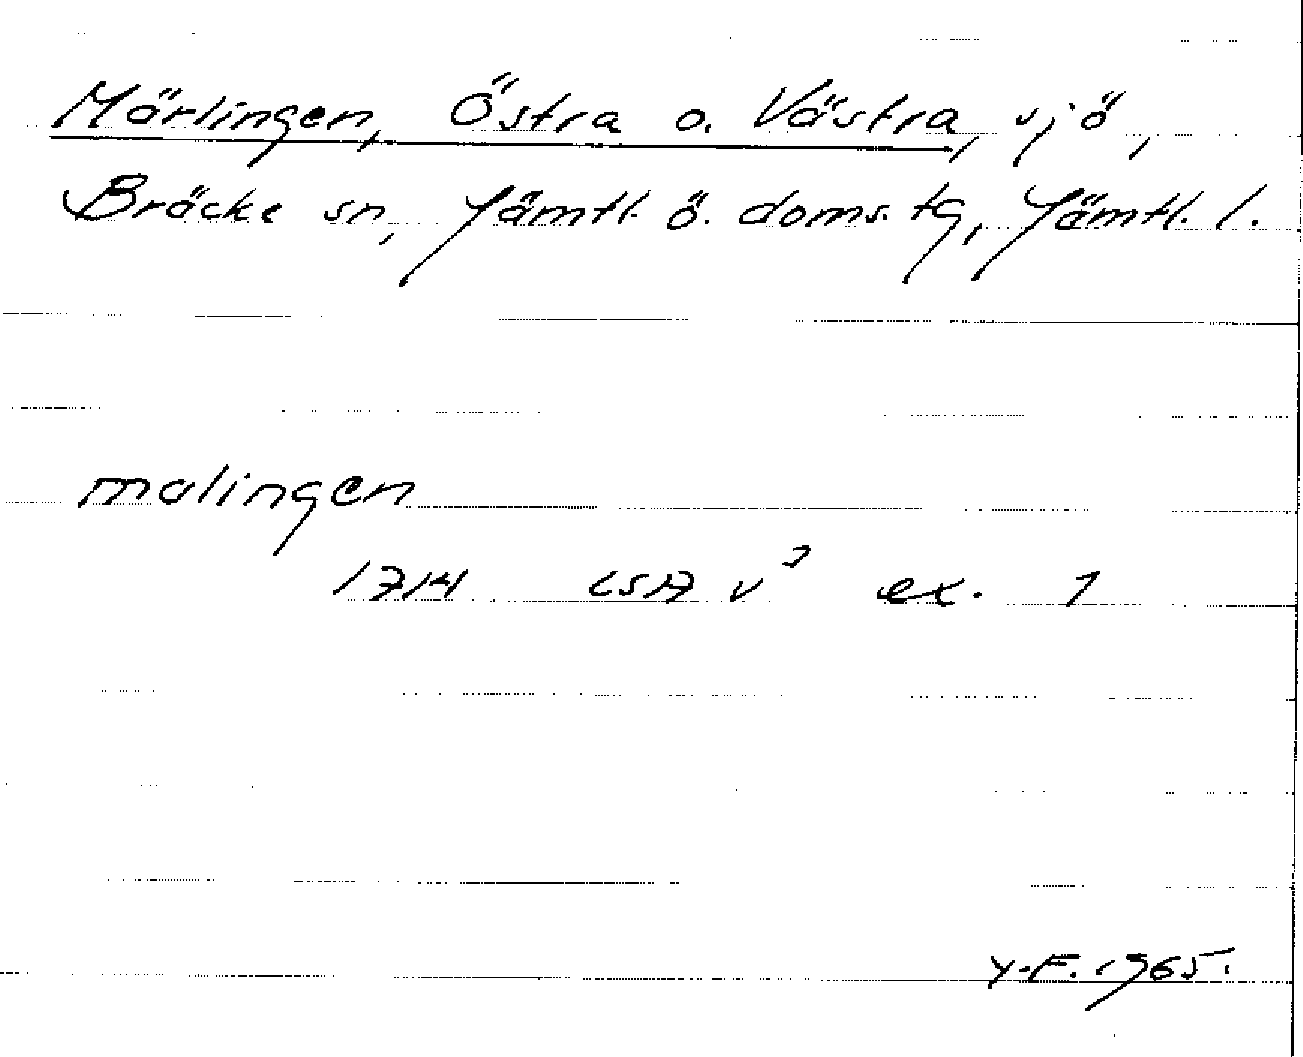 Märlingen, Östra o. Västra, sjö,
Bräcke sn, Jämtl. ö. doms. tg, Jämtl. l.
malingen
1714 LSA v³ ex. 1
Y.F. 1965.